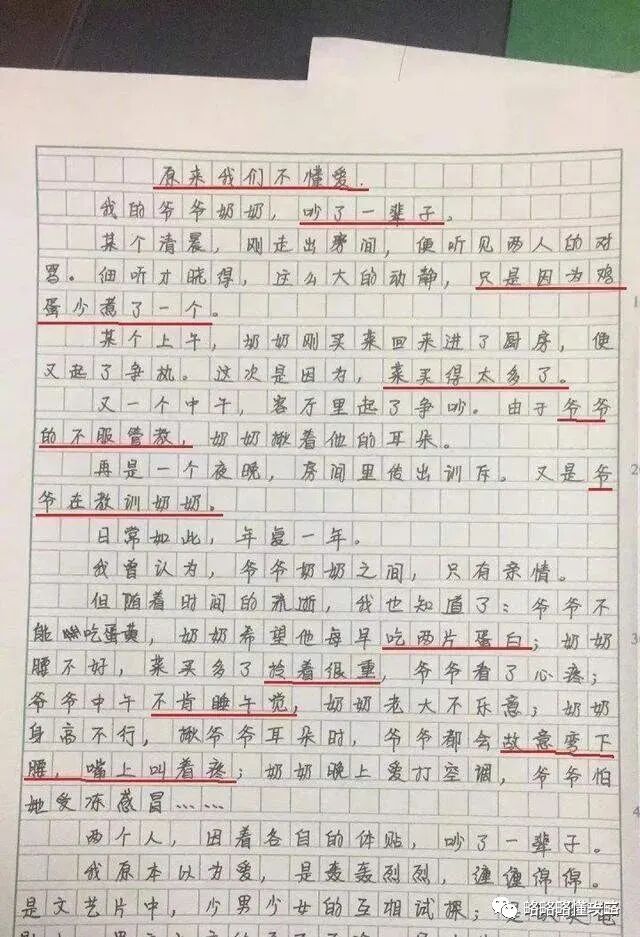 原来我们不懂爱.
我的爷爷奶奶，吵了一辈子。
某个清晨，刚走出房间，便听见两人的对
骂。细听才晓得，这么大的动静，只是因为鸡
蛋少煮了一个。
某个上午，奶奶刚买菜回来进了厨房，便
又起了争执。这次是因为，菜买得太多了。
又一个中午，客厅里起了争吵。由于爷爷
的不服管教，奶奶揪着他的耳朵。
再是一个夜晚，房间里传出训斥。又是爷
爷在教训奶奶。
日常如此，年复一年。
我曾认为，爷爷奶奶之间，只有亲情。
但随着时间的流逝，我也知道了：爷爷不
能吃蛋黄，奶奶希望他每早吃两片蛋白；奶奶
腰不好，菜买多了拎着很重，爷爷看了心疼；
爷爷中午不肯睡午觉，奶奶老大不乐意；奶奶
身高不行，揪爷爷耳朵时，爷爷都会故意弯下
腰，嘴上叫着疼；奶奶晚上爱打空调，爷爷怕
她受冻感冒……
两个人，因着各自的体贴，吵了一辈子。
我原本以为爱，是轰轰烈烈，缠缠绵绵。
是文艺片中，少男少女的互相试探；
略略略懂